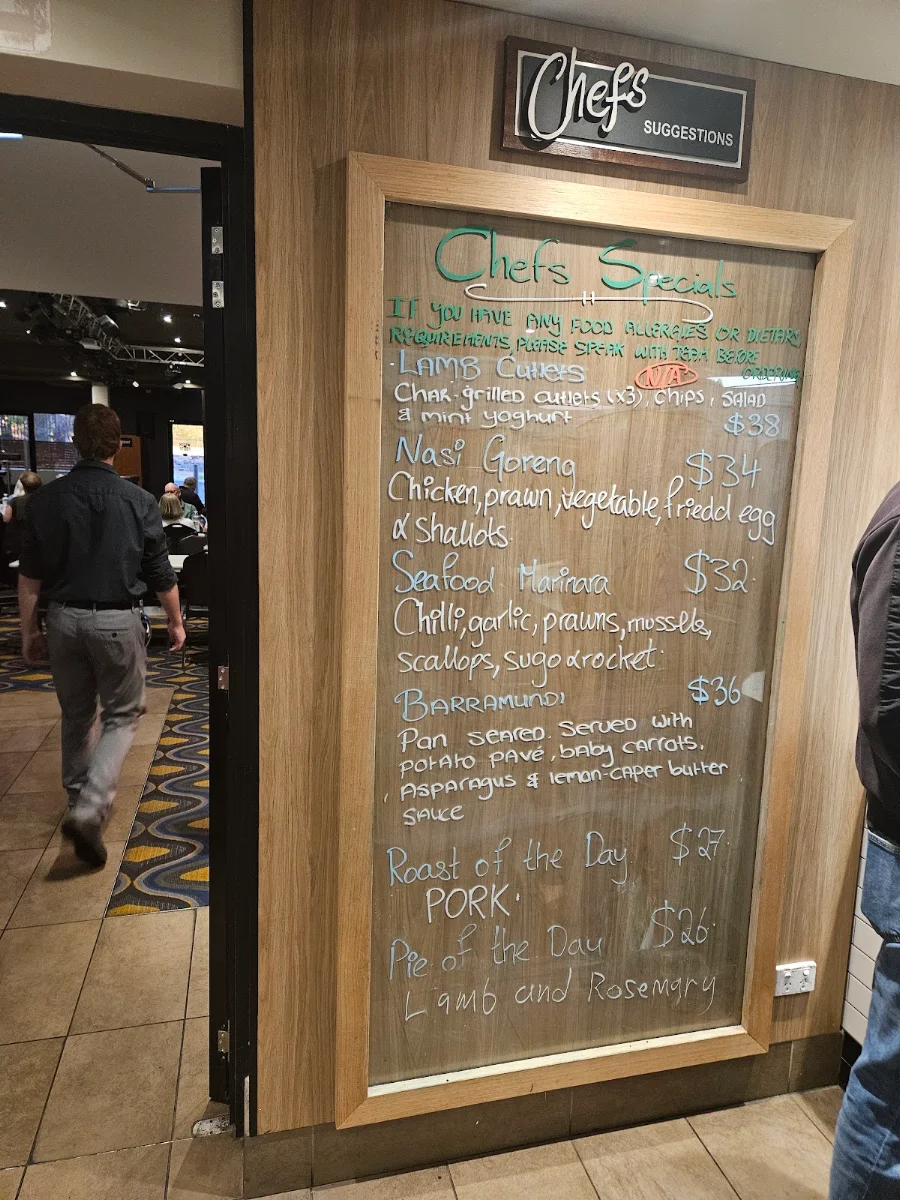 Chefs
SUGGESTIONS
Chefs Specials
IF YOU HAVE ANY FOOD ALLERGIES OR DIETARY
REQUIREMENTS PLEASE SPEAK WITH TEAM BEFORE
ORDERING
LAMB Cutlets N/A
Char-grilled cutlets (x3), chips, salad
& mint yoghurt $38
Nasi Goreng $34
Chicken, prawn, vegetable, friedd egg
& Shallots
Seafood Marinara $32
Chilli, garlic, prawns, mussels,
scallops, sugo & rocket
BARRAMUNDI $36
Pan seared. Served with
potato pavé, baby carrots.
Asparagus & lemon-caper butter
sauce
Roast of the Day $27
PORK.
Pie of the Day $26
Lamb and Rosemary